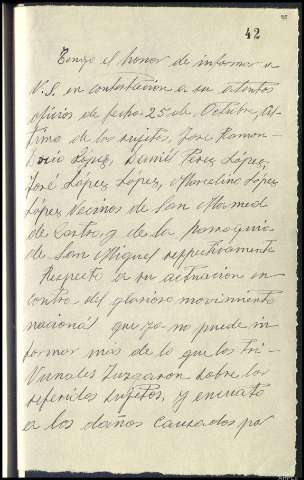 42
Tengo el honor de informar a
V.S. en contestación a su atentos
oficios de fecha 25 de Octubre, úl-
timo de los sujetos, José Ramon
López, Daniel Perez López,
José López López, Marcelino López
López, Vecinos de San Mamed
de Castro, y de la parroquia
de San Miguel respectivamente
Respecto a su actuación en
contra del glorioso movimiento
nacional que ya no puede in-
formar más de lo que los tri-
Vunales Juzgaron sobre los
referidos sujetos, y encuato
a los daños causados por